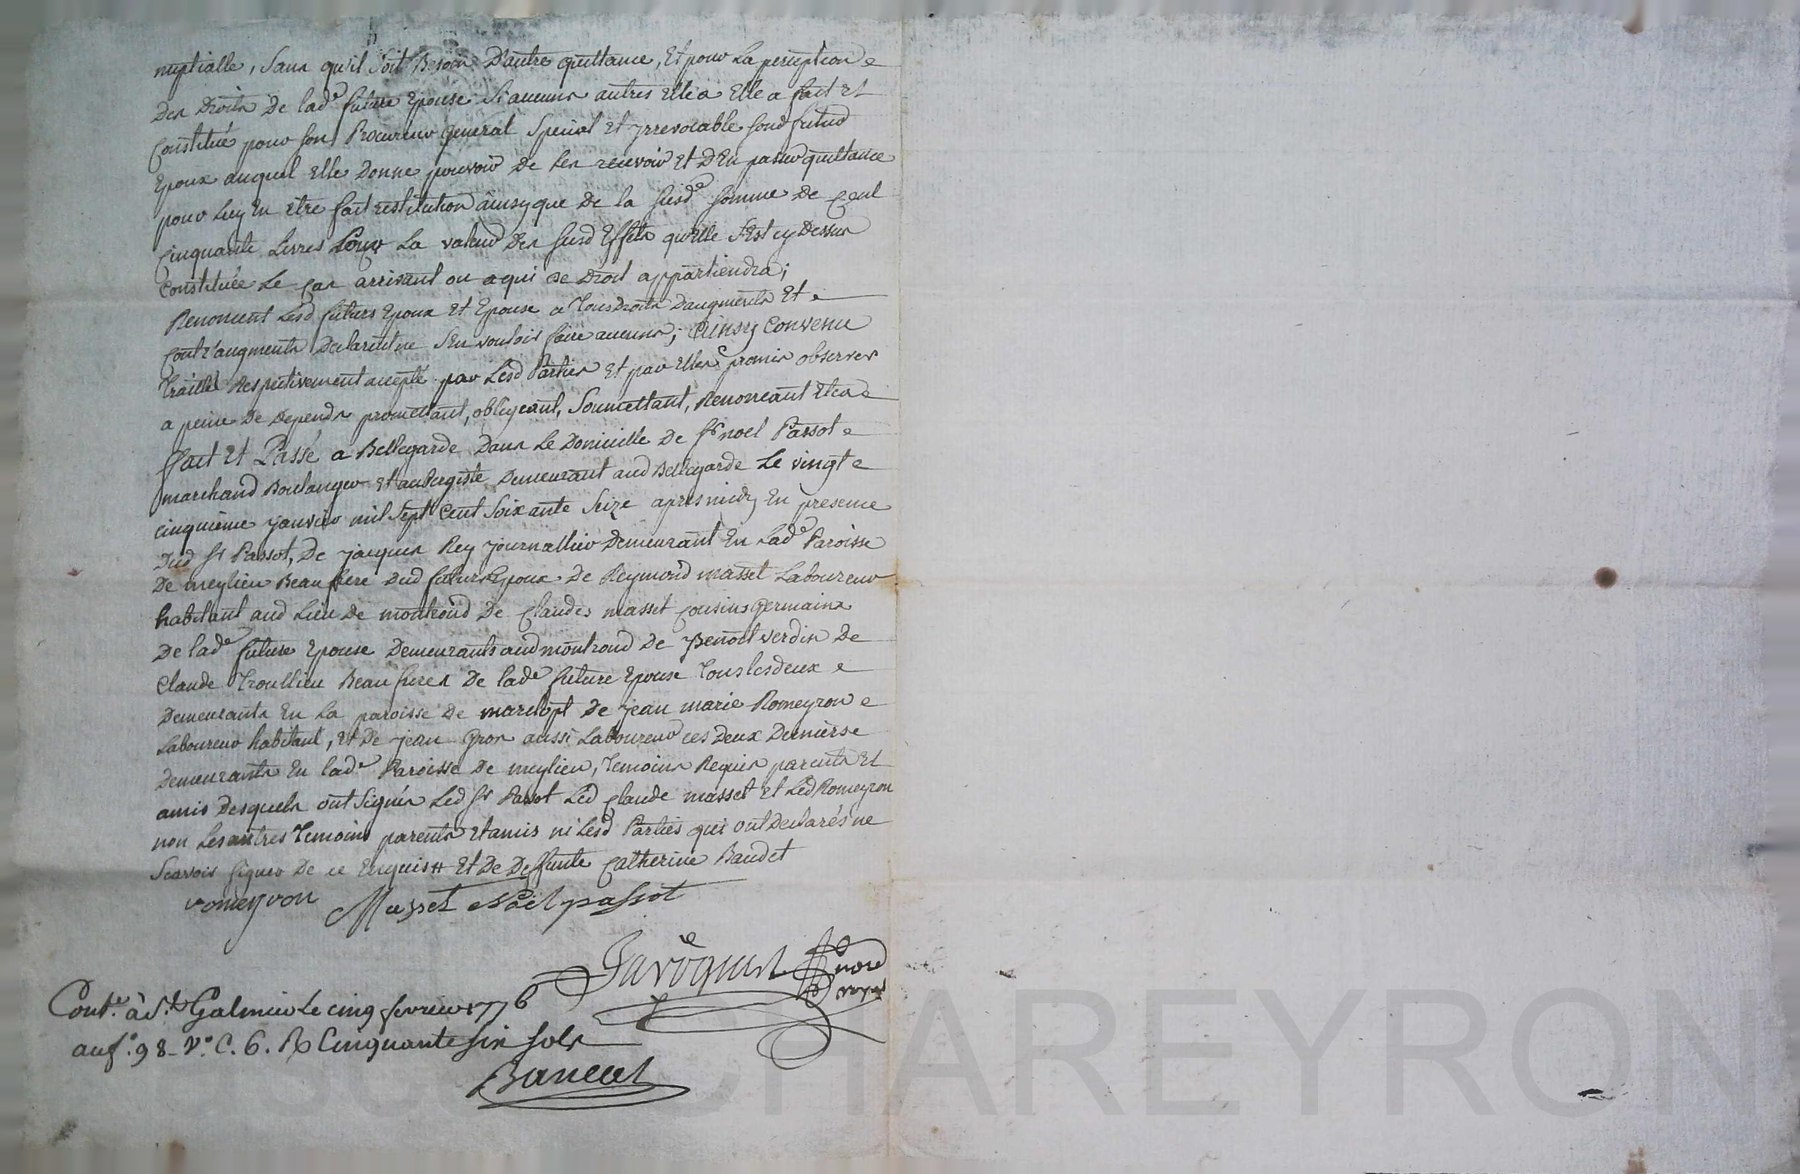 nuptialle, Sans qu'il soit Besoin Dautre quittance, Et pour La perception
Des Droits De lade future Epouse Si aucuns autres Elle a Elle a fait Et
Constitué pour son Procureur general Special Et yrrevocable sond futur
Epoux auquel Elle Donne pouvoir De les recevoir Et D'En passer quittance
pour Luy En etre fait restitution ainsy que De la susde somme De Cent
Cinquante Livres Pour La valeur Des susd Effets qu'elle s'Est cy Dessus
Constituée Le Cas arrivant ou a qui De Droit appartiendra;
Renoncent Lesd futurs Epoux Et Epouse a Tous Droits D'augments Et
Contr'augments Declarent ne s'En vouloir faire aucuns; Ainsy Convenu
Traitté Respectivement accepté par Lesd Parties Et par Elles promis observer
a peine De Depends promettant, obligeant, Soumettant, Renonceant Etca
fait Et Passé a Bellegarde Dans Le Domicille De Sr noel Passot
marchand Boulanger Et aubergiste Demeurant aud Bellegarde Le vingt
cinquieme janvier mil Sept Cent Soixante Seize apres midy En presence
Dud Sr Passot, De jacques Rey journallier Demeurant En Lade Paroisse
De meylieu Beau frere Dud futur Epoux De Reymond masset Laboureur
habitant aud Lieu De montrond De Claudes masset Cousins germains
De lade future Epouse Demeurants aud montrond De Benoit verdin De
Claude Troullieu Beau freres De lade future Epouse Tous les deux
Demeurants En La paroisse De marclopt De jean marie Romeyron
Laboureur habitant, Et De jean Gron aussi Laboureur ces Deux Derniers
Demeurants En lade Paroisse De meylieu, Temoins Requis parents Et
amis Desquels ont signés Led Sr Passot Led Claude masset Et Led Romeyron
non Les autres Temoins parents Et amis ni Lesd Parties qui ont Declarés ne
Scavoir signer De ce Enquis # Et De Deffunte Catherine Baudet
romeyron Masset Noël passot
Javogues nore royal
Cont.e à St Galmier le cinq fevrier 1776
au f.o 98 V.o C. 6. R Cinquante six sols
Bancal
CHAREYRON